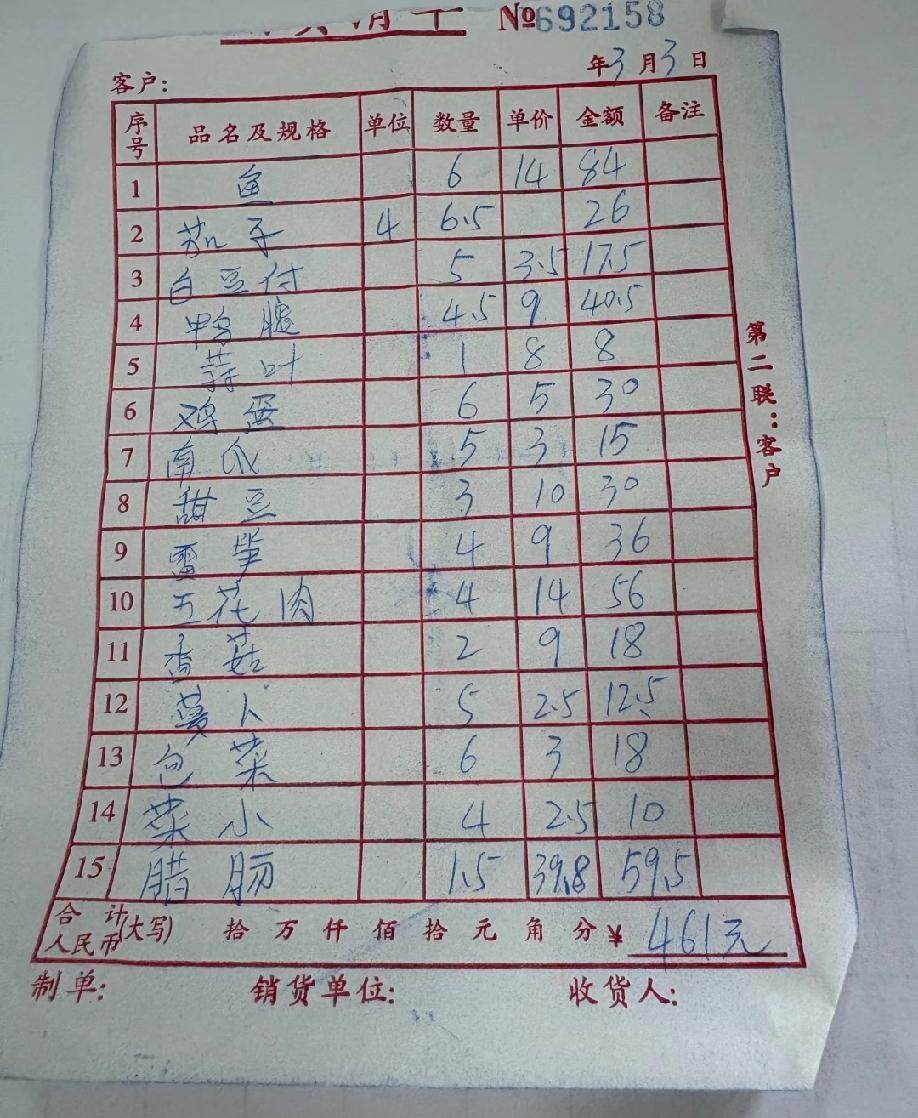 清单 №692158
年3月3日
客户:
序号 品名及规格 单位 数量 单价 金额 备注
1 鱼 6 14 84
2 茄子 4 6.5 26
3 白豆付 5 3.5 17.5
4 鸭腿 4.5 9 40.5
5 蒜叶 1 8 8
6 鸡蛋 6 5 30
7 南瓜 5 3 15
8 甜豆 3 10 30
9 雷笋 4 9 36
10 五花肉 4 14 56
11 香菇 2 9 18
12 卜 5 2.5 12.5
13 包菜 6 3 18
14 菜小 4 2.5 10
15 腊肠 1.5 39.8 59.5
合计人民币(大写) 拾万仟佰拾元角分¥ 461元
制单: 销货单位: 收货人:
第二联:客户